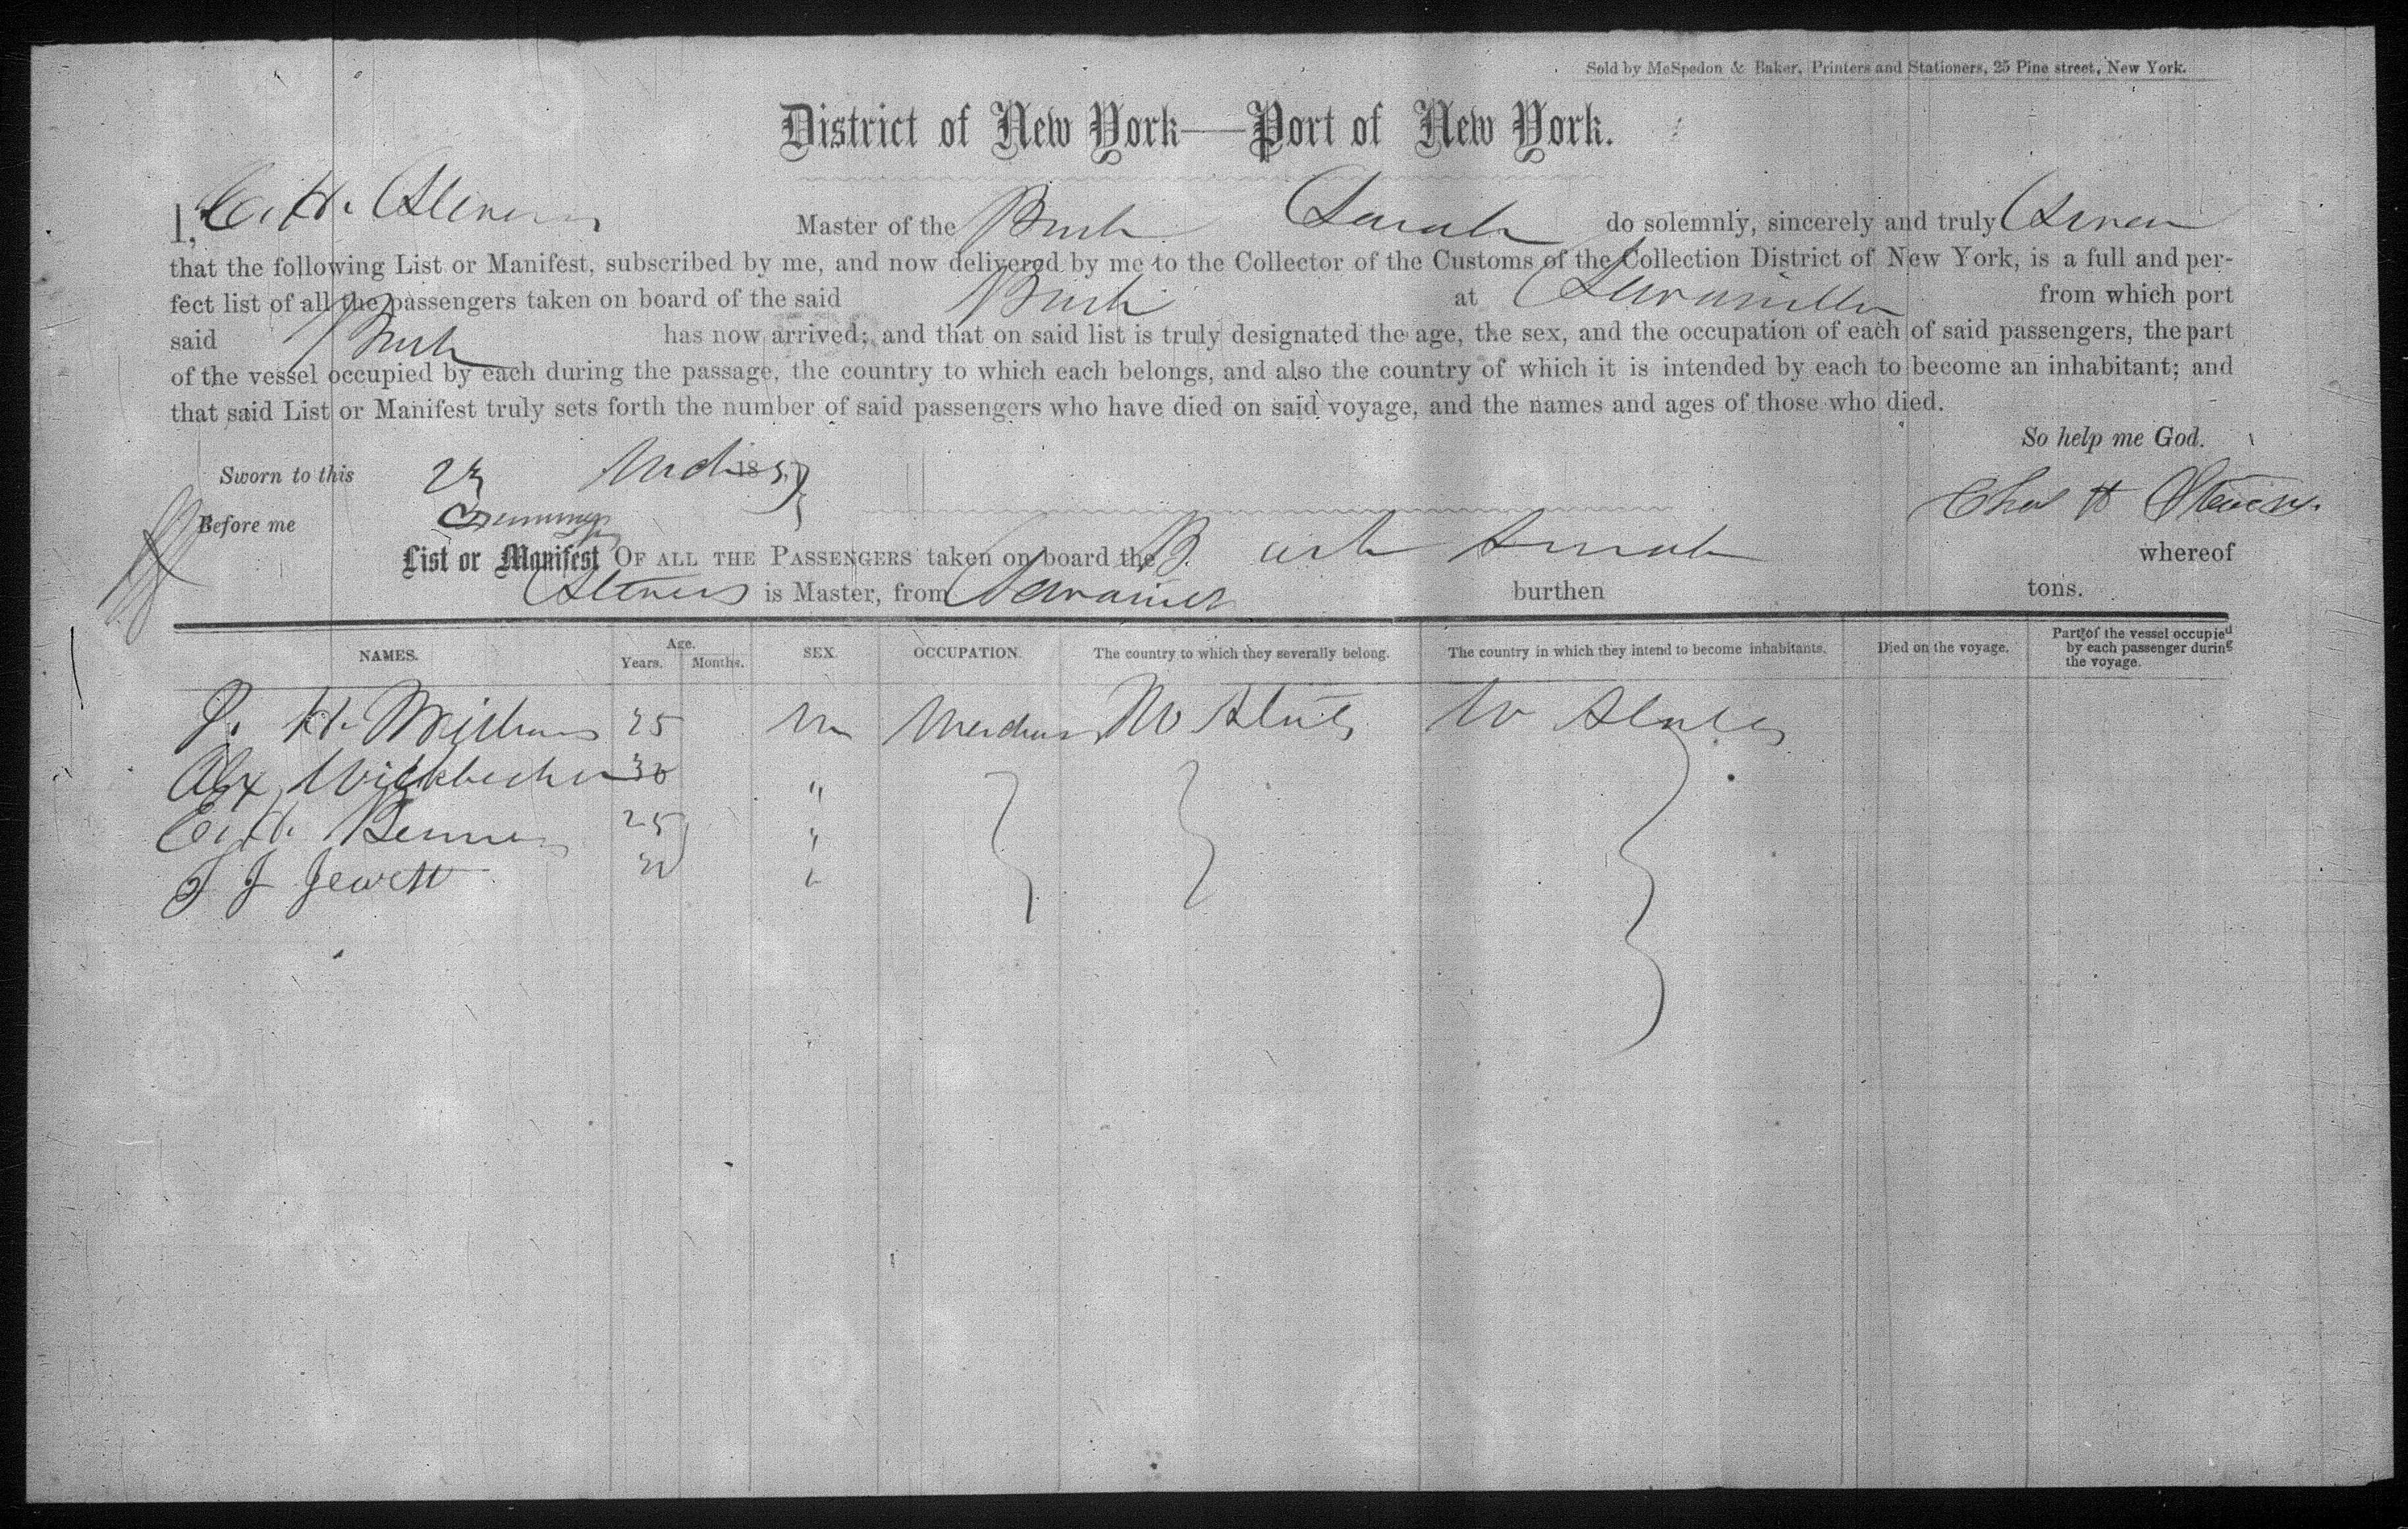 Sold by McSpedon & Baker, Printers and Stationers, 25 Pine street, New York.
District of New York—Port of New York.
I, C. H. Stevens Master of the Bark Sarah do solemnly, sincerely and truly Swear
that the following List or Manifest, subscribed by me, and now delivered by me to the Collector of the Customs of the Collection District of New York, is a full and per-
fect list of all the passengers taken on board of the said Bark at Savanilla from which port
said Bark has now arrived; and that on said list is truly designated the age, the sex, and the occupation of each of said passengers, the part
of the vessel occupied by each during the passage, the country to which each belongs, and also the country of which it is intended by each to become an inhabitant; and
that said List or Manifest truly sets forth the number of said passengers who have died on said voyage, and the names and ages of those who died.
So help me God.
Sworn to this 23 Mch 185
Chas H Stevens.
Before me
List or Manifest OF ALL THE PASSENGERS taken on board the Bark Sarah whereof
Stevens is Master, from burthen tons.
NAMES. Age. Years. Months. SEX. OCCUPATION. The country to which they severally belong. The country in which they intend to become inhabitants. Died on the voyage. Part of the vessel occupied by each passenger during the voyage.
H. 25 M U States U States
Alex 30 "
C. H. 25 "
J Jewett "